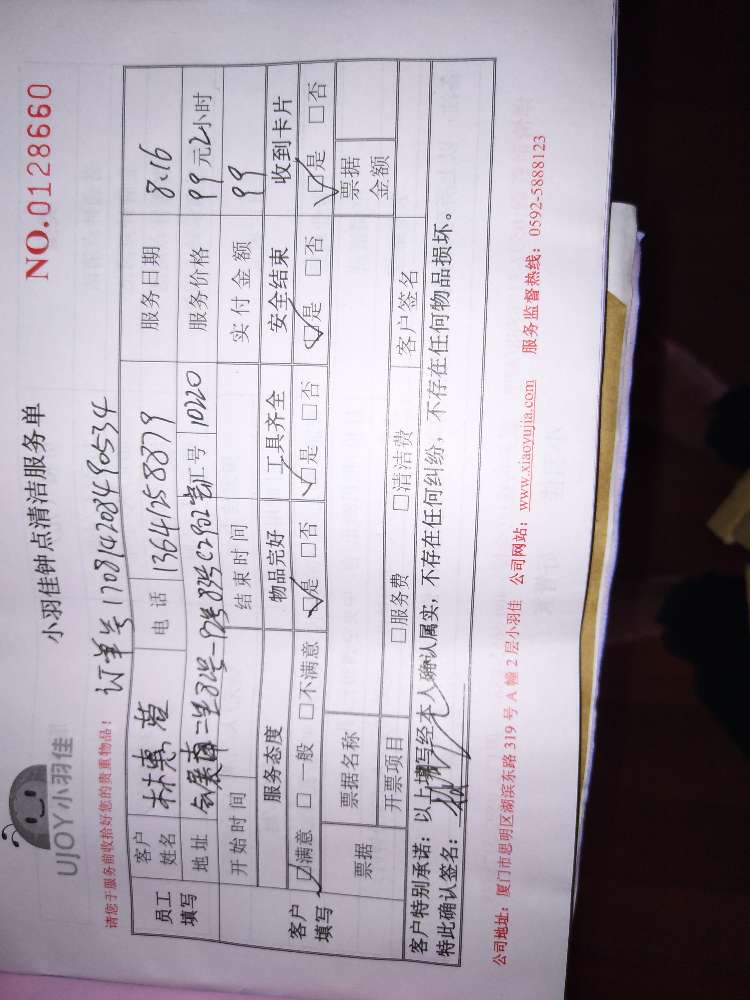 UJOY小羽佳
小羽佳钟点清洁服务单
NO.0128660
请您于服务前收拾好您的贵重物品！
订单号
员工填写
客户姓名 林惠
电话 13641258879
服务日期 8.16
地址
汇号 10220
服务价格 99元2小时
开始时间
结束时间
实付金额 99
客户填写
服务态度
物品完好
工具齐全
安全结束
收到卡片
☑满意 □一般 □不满意
☑是 □否
☑是 □否
☑是 □否
☑是 □否
票据
票据名称
票据金额
开票项目
□服务费
□清洁费
客户签名
客户特别承诺：以上填写经本人确认属实，不存在任何纠纷，不存在任何物品损坏。
特此确认签名：
公司地址：厦门市思明区湖滨东路319号A幢2层小羽佳 公司网站：www.xiaoyujia.com 服务监督热线：0592-5888123